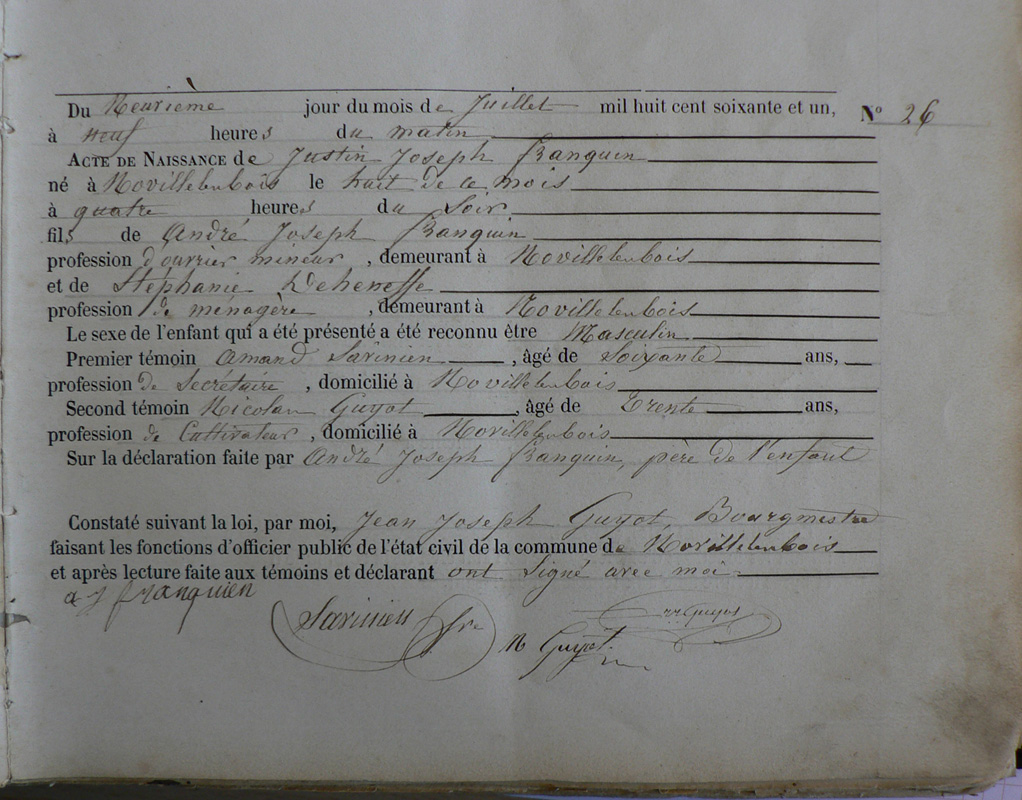 Du Neuvième jour du mois de Juillet mil huit cent soixante et un, N° 26
à neuf heures du matin
ACTE DE NAISSANCE de Justin Joseph Franquin
né à Novillelenbois le huit de ce mois
à quatre heures du Soir
fils de André Joseph Franquin
profession d'ouvrier mineur, demeurant à Novillelenbois
et de Stéphanie Dehenesse
profession de ménagère, demeurant à Novillelenbois
Le sexe de l'enfant qui a été présenté a été reconnu être Masculin
Premier témoin Amand Savinien, âgé de Soixante ans,
profession de Secrétaire, domicilié à Novillelenbois
Second témoin Nicolas Guyot, âgé de Trente ans,
profession de Cultivateur, domicilié à Novillelenbois
Sur la déclaration faite par André Joseph Franquin, père de l'enfant
Constaté suivant la loi, par moi, Jean Joseph Guyot, Bourgmestre
faisant les fonctions d'officier public de l'état civil de la commune de Novillelenbois
et après lecture faite aux témoins et déclarant ont Signé avec moi
a j franquien
Savinien
Guyot
N Guyot